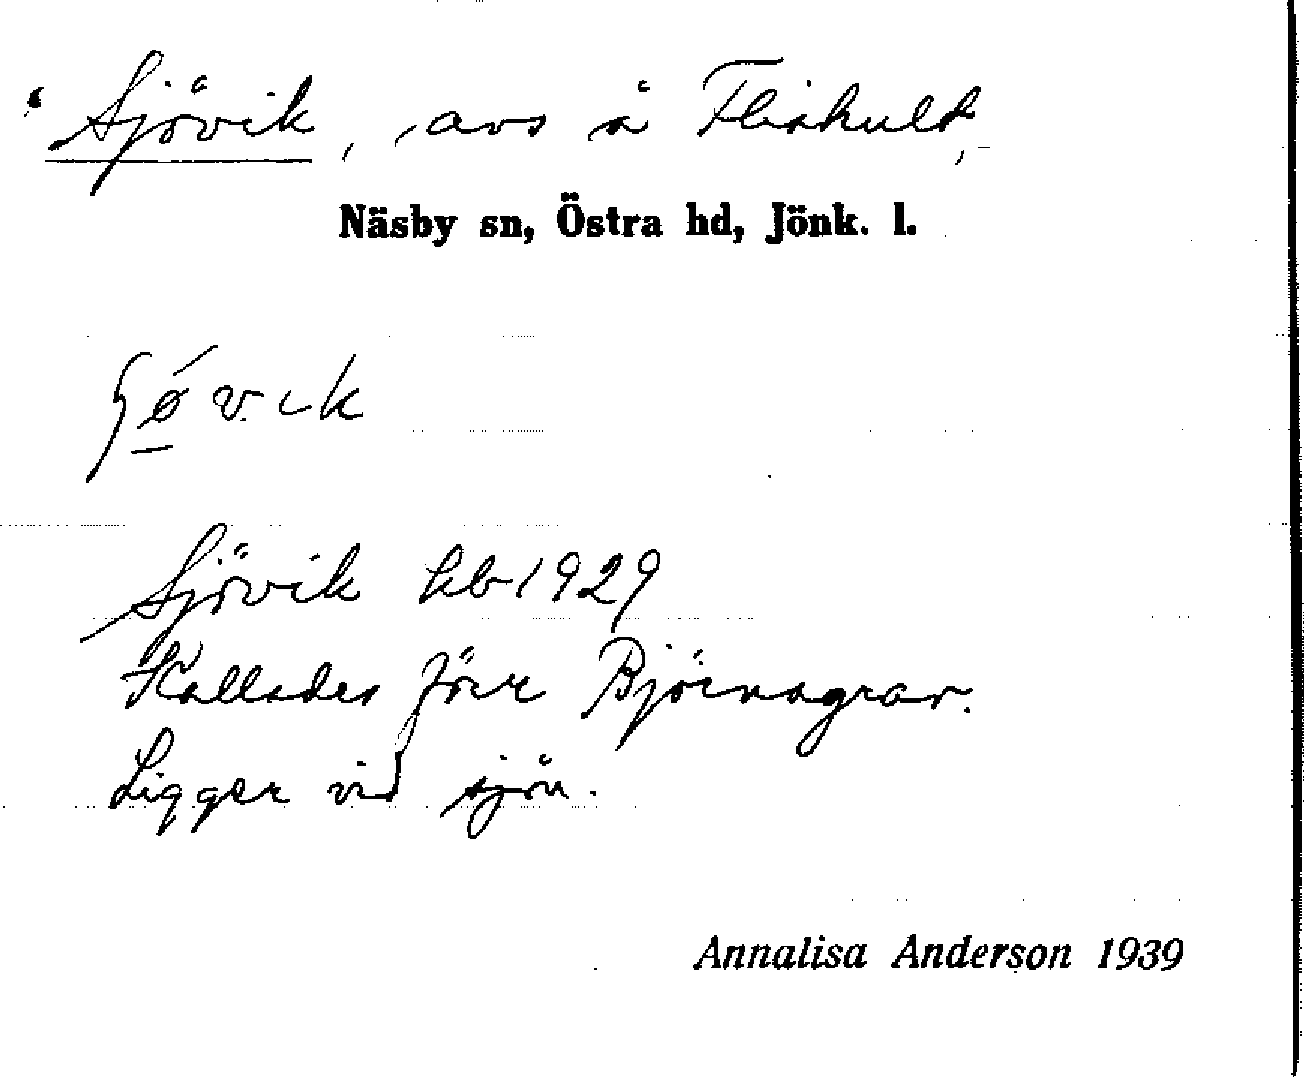 Sjövik, avs å Fliskult,
Näsby sn, Östra hd, Jönk. l.
Sjövik kb 1929
Kallades förr Björnagrav.
Ligger vid sjön.
Annalisa Anderson 1939